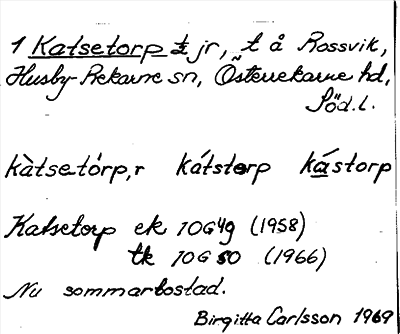 1 Katsetorp tjr, t å Rossvik,
Husby-Rekarne sn, Österrekarne hd,
Söd.l.
kàtsetórp,r kátstorp kástorp
Katsetorp ek 10G4g (1958)
tk 10G SO (1966)
Nu sommarbostad.
Birgitta Carlsson 1969